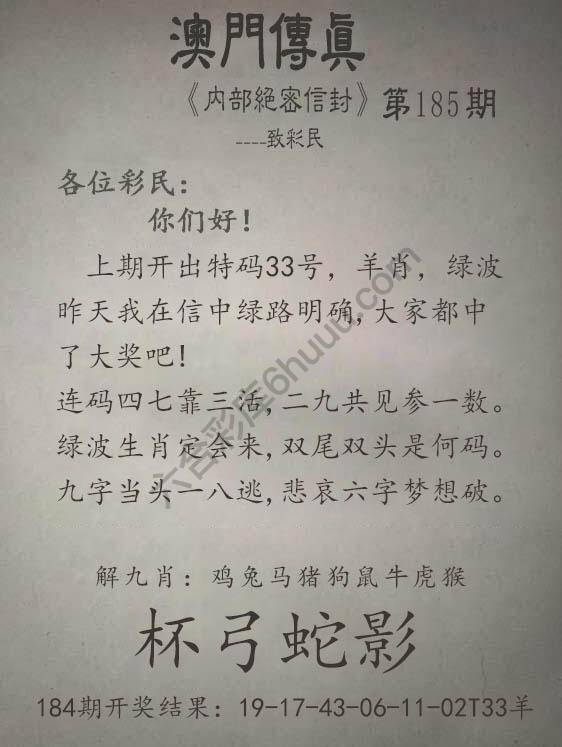 澳門傳眞
《内部絶密信封》第185期
----致彩民
各位彩民：
你们好！
上期开出特码33号，羊肖，绿波
昨天我在信中绿路明确，大家都中
了大奖吧！
连码四七靠三活，二九共见参一数。
绿波生肖定会来，双尾双头是何码。
九字当头一八逃，悲哀六字梦想破。
六合彩库6huuu.com
解九肖：鸡兔马猪狗鼠牛虎猴
杯弓蛇影
184期开奖结果：19-17-43-06-11-02T33羊